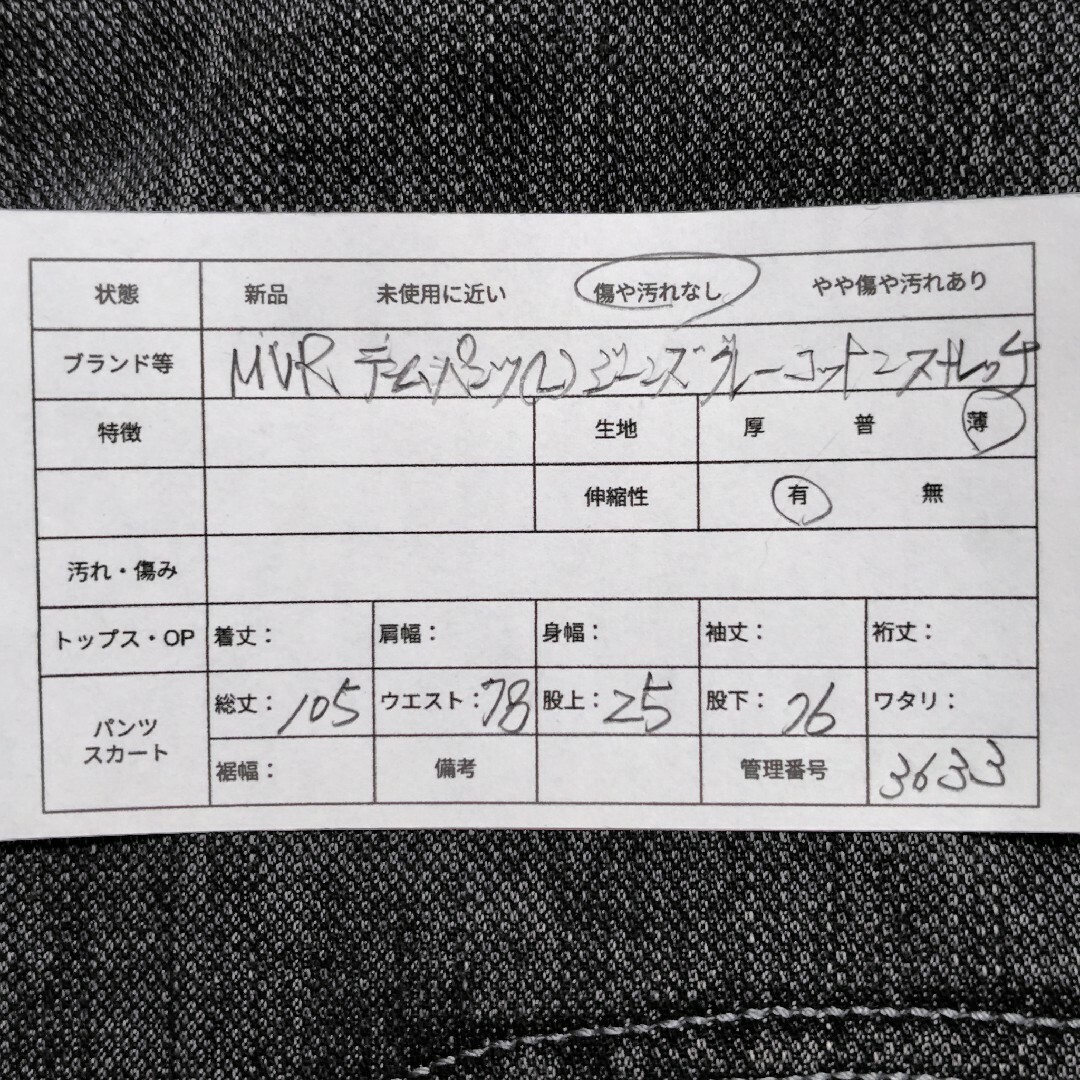 状態 新品 未使用に近い 傷や汚れなし やや傷や汚れあり
ブランド等 MVR デニムパンツ(L)ジーンズグレーコットンストレッチ
特徴 生地 厚 普 薄
伸縮性 有 無
汚れ・傷み
トップス・OP 着丈： 肩幅： 身幅： 袖丈： 裄丈：
パンツ スカート
総丈：105 ウエスト：78 股上：25 股下：76 ワタリ：
裾幅： 備考 管理番号 3633